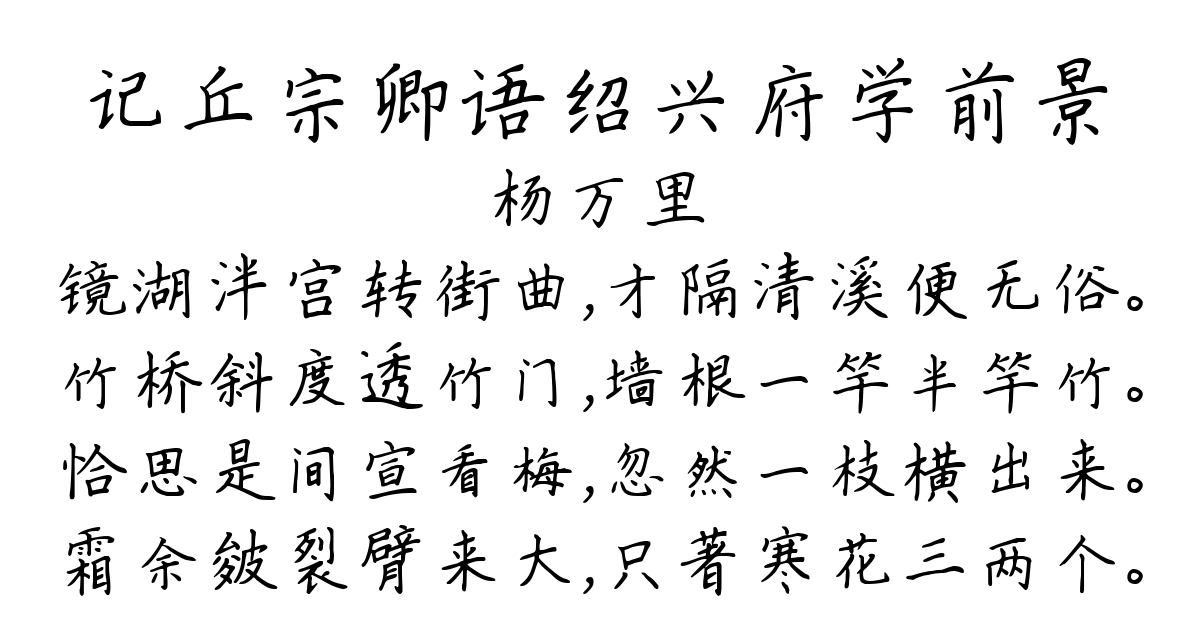 记丘宗卿语绍兴府学前景
杨万里
镜湖泮宫转街曲,才隔清溪便无俗。
竹桥斜度透竹门,墙根一竿半竿竹。
恰思是间宣看梅,忽然一枝横出来。
霜余皴裂臂来大,只著寒花三两个。